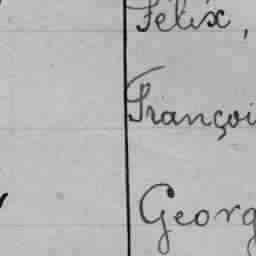 Félix,
Françoi
Georg